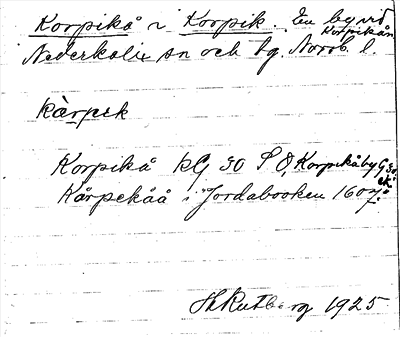 Korpikå r Korpik. En by vid
Korpikån,
Nederkalix sn och tg. Norrb. l.
kàrpek
Korpikå kG 30 S Ö, Korpikåby G 30.
ek.
Kårpekåå i Jordabooken 1607.
H Rutberg 1925